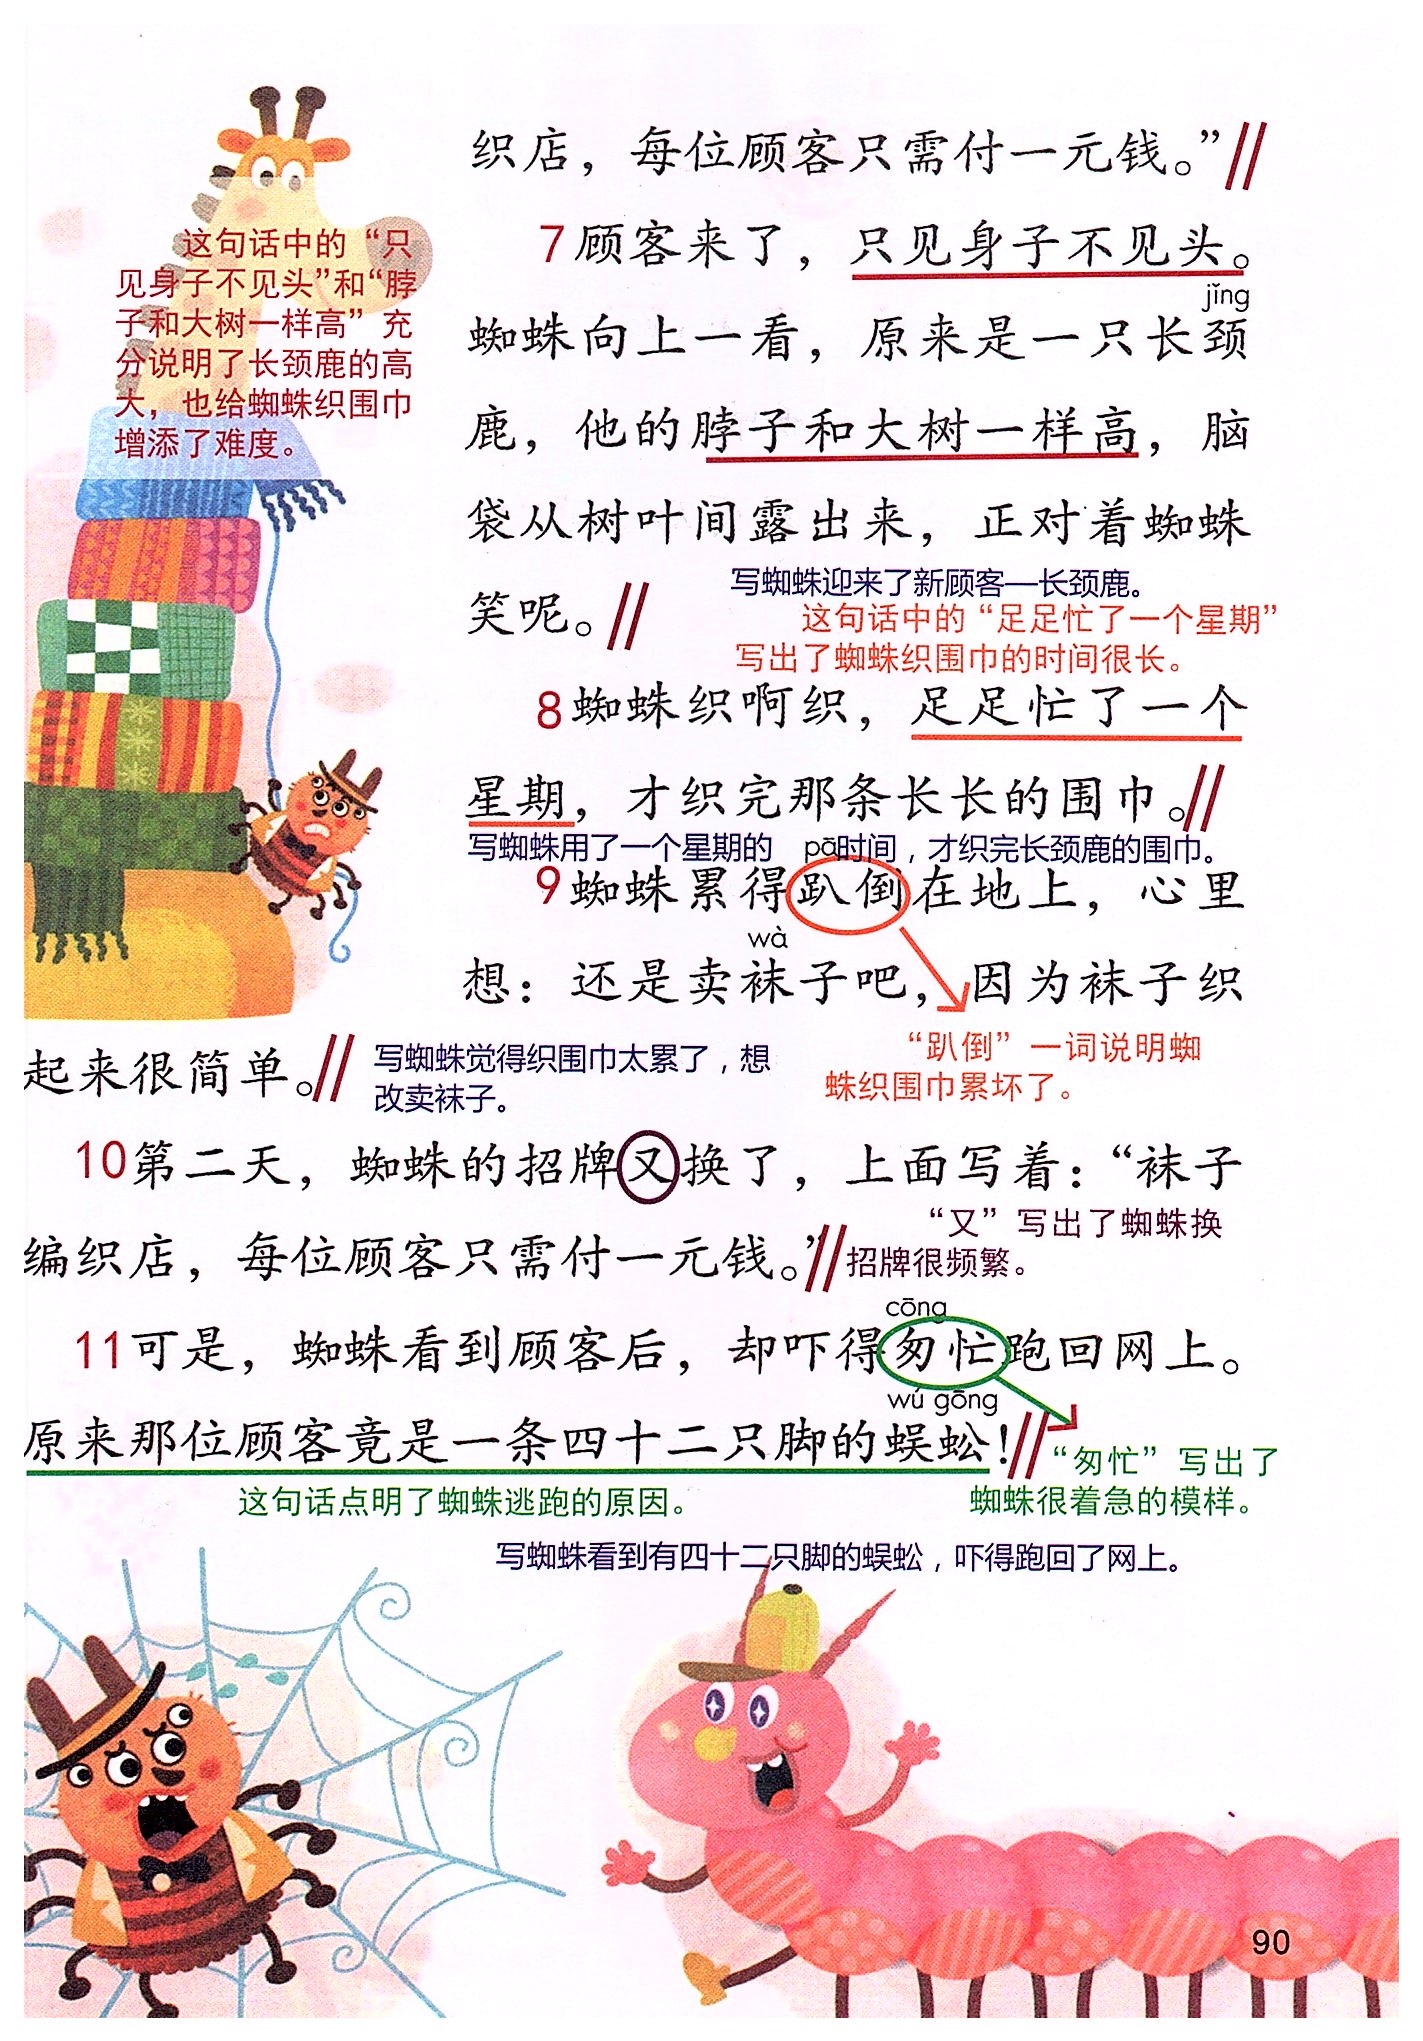 织店，每位顾客只需付一元钱。”
7顾客来了，只见身子不见头。
这句话中的“只
见身子不见头”和“脖
子和大树一样高”充
分说明了长颈鹿的高
大，也给蜘蛛织围巾
增添了难度。
jǐng
蜘蛛向上一看，原来是一只长颈
鹿，他的脖子和大树一样高，脑
袋从树叶间露出来，正对着蜘蛛
笑呢。
写蜘蛛迎来了新顾客—长颈鹿。
这句话中的“足足忙了一个星期”
写出了蜘蛛织围巾的时间很长。
8蜘蛛织啊织，足足忙了一个
星期，才织完那条长长的围巾。
写蜘蛛用了一个星期的时间，才织完长颈鹿的围巾。
pā
9蜘蛛累得趴倒在地上，心里
wà
想：还是卖袜子吧，因为袜子织
起来很简单。
写蜘蛛觉得织围巾太累了，想
改卖袜子。
“趴倒”一词说明蜘
蛛织围巾累坏了。
10第二天，蜘蛛的招牌又换了，上面写着：“袜子
编织店，每位顾客只需付一元钱。”
“又”写出了蜘蛛换
招牌很频繁。
cōng
11可是，蜘蛛看到顾客后，却吓得匆忙跑回网上。
wú gōng
原来那位顾客竟是一条四十二只脚的蜈蚣！
“匆忙”写出了
蜘蛛很着急的模样。
这句话点明了蜘蛛逃跑的原因。
写蜘蛛看到有四十二只脚的蜈蚣，吓得跑回了网上。
90